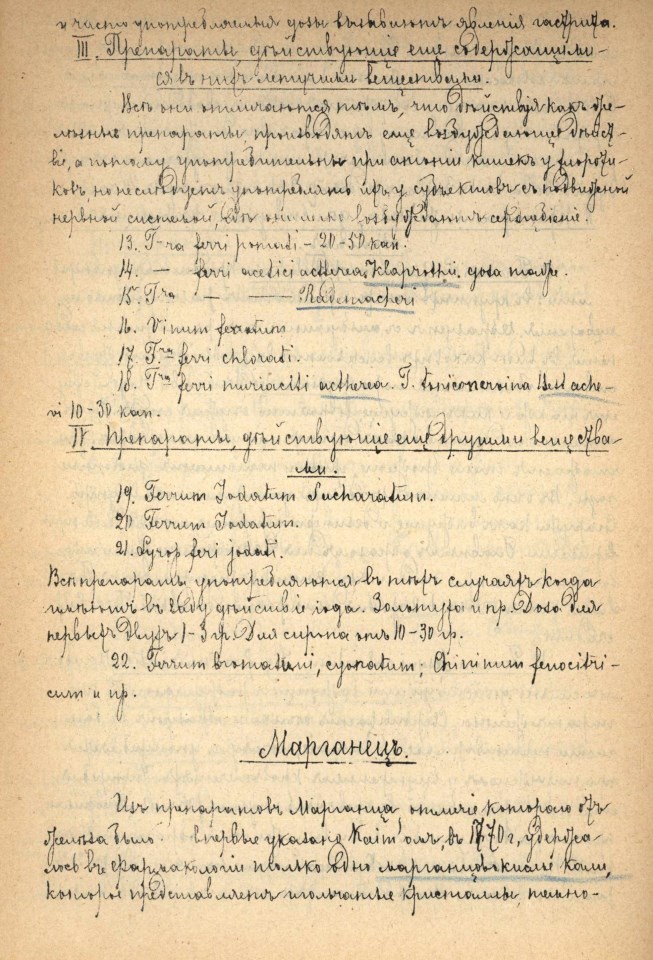 и часто употребляемыя дозы вызываютъ явленія гастрита.
III. Препараты дѣйствующіе еще содержащими-
ся въ нихъ летучими веществами.
Всѣ они отличаются тѣмъ, что дѣйствуя какъ же-
лѣзные препараты производятъ еще возбуждающее дѣйст-
віе, а потому употребительны при атоніи кишекъ у хлороти-
ковъ, но не слѣдуетъ употреблять ихъ у субъектовъ съ подвижной
нервной системой, гдѣ они легко возбуждаютъ сердцебіеніе.
13. T-ra ferri pomati – 20-50 кап.
14. — ferri acetici aetherea Klaprothii. доза таже.
15. T-ra — — Rademacheri
16. Vinum ferratum
17. T-ra ferri chlorati.
18. T-ra ferri muriatici aetherea. T. tonico nervina Bestuche-
vi 10-30 кап.
IV. Препараты, дѣйствующіе еще другими вещества-
ми.
19. Ferrum Jodatum Sacharatum.
20 Ferrum Jodatum.
21. Syrop feri jodati.
Всѣ препараты употребляются въ тѣхъ случаяхъ когда
имѣютъ въ виду дѣйствіе іода. Золотуха и пр. Доза для
первыхъ двухъ 1-3 гр. Для сиропа отъ 10-30 гр.
22. Ferrum bromatum, cyanatum; Chininum ferrocitri-
cum и пр.
Марганецъ.
Изъ препаратовъ Марганца, отличіе котораго отъ
желѣза было впервые указано Kaim'омъ, въ 1770 г, удержа-
лось въ фармакологіи только одно марганцовокислое кали,
которое представляетъ игольчатые кристаллы, темно-